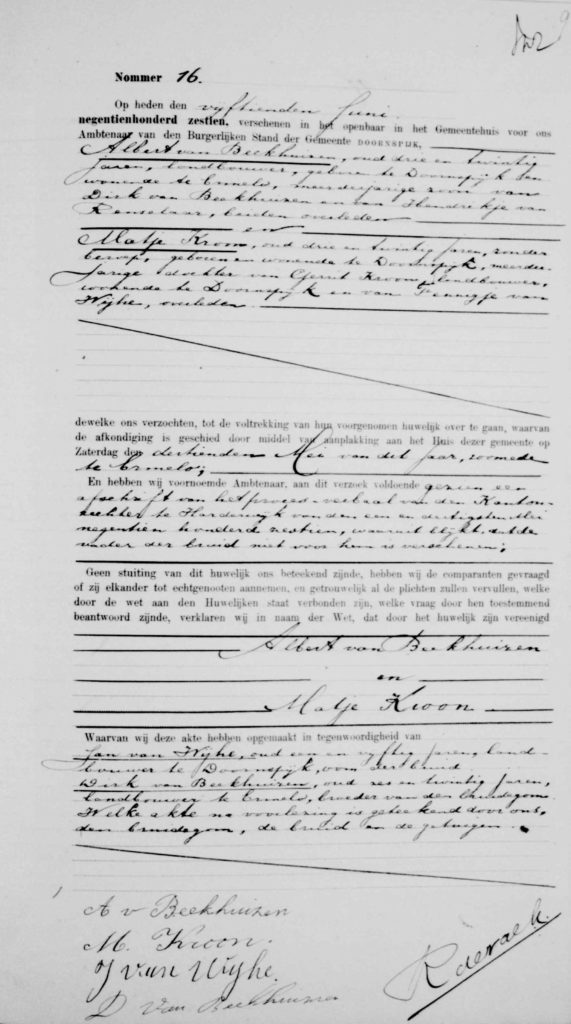 Nommer 16.
Op heden den vyftienden Juni
negentienhonderd zestien, verschenen in het openbaar in het Gemeentehuis voor ons
Ambtenaar van den Burgerlijken Stand der Gemeente DOORNSPIJK,
Albert van Beekhuizen, oud drie en twintig
jaren, landbouwer, geboren te Doornspijk en
wonende te Ermelo, meerderjarige zoon van
Dirk van Beekhuizen en van Hendrikje van
Renselaar, beiden overleden
en
Matje Kroon, oud drie en twintig jaren, zonder
beroep, geboren en wonende te Doornspijk, meerder-
jarige dochter van Gerrit Kroon, landbouwer,
wonende te Doornspijk en van Pennigje van
Wijhe, overleden.
dewelke ons verzochten, tot de voltrekking van hun voorgenomen huwelijk over te gaan, waarvan
de afkondiging is geschied door middel van aanplakking aan het Huis dezer gemeente op
Zaterdag den dertienden Mei van dit jaar, zoomede
te Ermelo;
En hebben wij voornoemde Ambtenaar, aan dit verzoek voldoende gezien een
afschrift van het proces-verbaal van den Kanton-
rechter te Harderwijk van den een en dertigsten Mei
negentien honderd zestien, waaruit blijkt, dat de
vader der bruid niet voor hem is verschenen;
Geen stuiting van dit huwelijk ons beteekend zijnde, hebben wij de comparanten gevraagd
of zij elkander tot echtgenooten aannemen, en getrouwelijk al de plichten zullen vervullen, welke
door de wet aan den Huwelijken staat verbonden zijn, welke vraag door hen toestemmend
beantwoord zijnde, verklaren wij in naam der Wet, dat door het huwelijk zijn vereenigd
Albert van Beekhuizen
en
Matje Kroon
Waarvan wij deze akte hebben opgemaakt in tegenwoordigheid van
Jan van Wijhe, oud een en vyftig jaren, land-
bouwer te Doornspijk, oom der bruid
Dirk van Beekhuizen, oud zes en twintig jaren,
landbouwer te Ermelo, broeder van den bruidegom.
Welke akte na voorlezing is geteekend door ons,
den bruidegom, de bruid en de getuigen.
A v Beekhuizen
M. Kroon.
J van Wijhe.
D van Beekhuizen